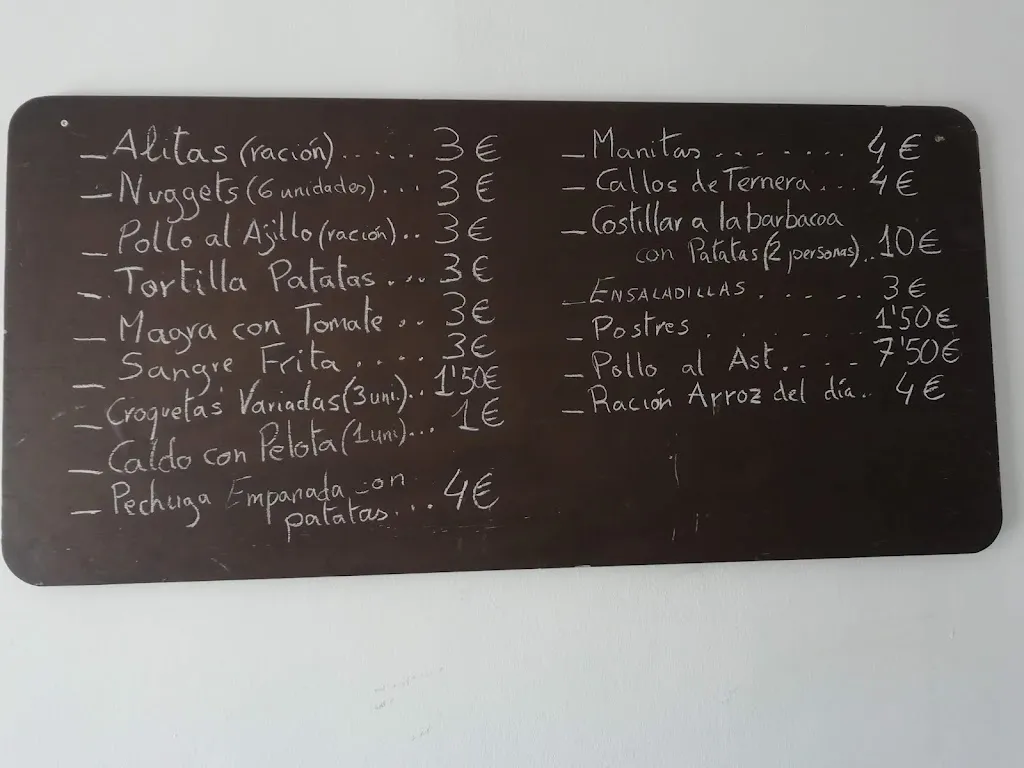 - Alitas (ración)..... 3€
- Nuggets (6 unidades)... 3€
- Pollo al Ajillo (ración).. 3€
- Tortilla Patatas... 3€
- Magra con Tomate.. 3€
- Sangre Frita.... 3€
- Croquetas Variadas (3 uni.).. 1'50€
- Caldo con Pelota (1 uni)... 1€
- Pechuga Empanada con
patatas... 4€
- Manitas....... 4€
- Callos de Ternera... 4€
- Costillar a la barbacoa
con Patatas (2 personas).. 10€
- ENSALADILLAS...... 3€
- Postres....... 1'50€
- Pollo al Ast.... 7'50€
- Ración Arroz del día.. 4€